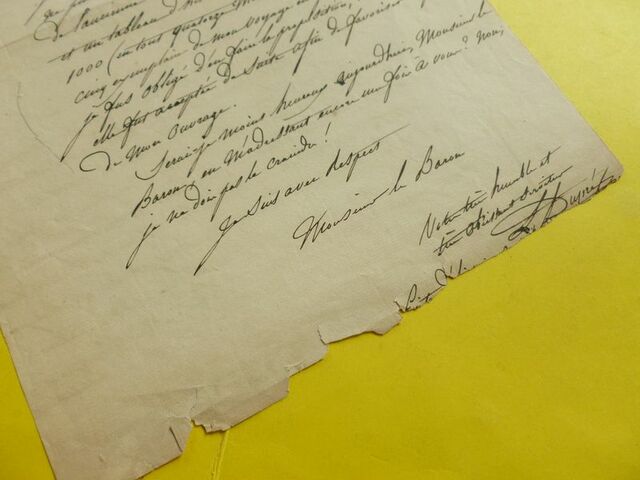 de l'ancienne
et un tableau d'
1000 (en tout quatorze
cinq exemplaires de mon Voyage
je fus obligé d'en faire la proposition,
elle fut acceptée de suite afin de favoriser
de mon ouvrage.
Serai-je moins heureux aujourd'hui, Monsieur le
Baron, en m'adressant encore une fois à vous? Non,
je ne dois pas le craindre!
Je suis avec respect
Monsieur le Baron
Votre très humble et
très obéissant serviteur